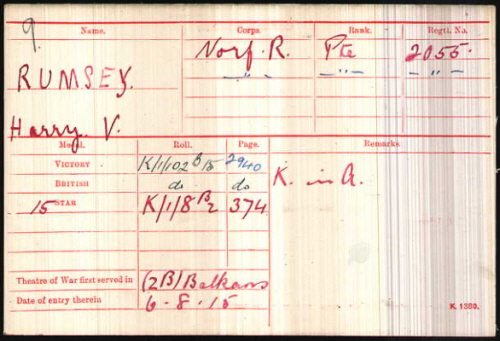 9.
Name. Corps. Rank. Regtl. No.
RUMSEY. Norf. R. Pte 2055.
—"— —"— —"—
Harry. V.
Medal. Roll. Page. Remarks.
VICTORY K/1/102 B 15 2940
BRITISH do do K. in A.
15 STAR K/1/8 B2 374
Theatre of War first served in (2B) Balkans
Date of entry therein 6-8-15
K 1380.